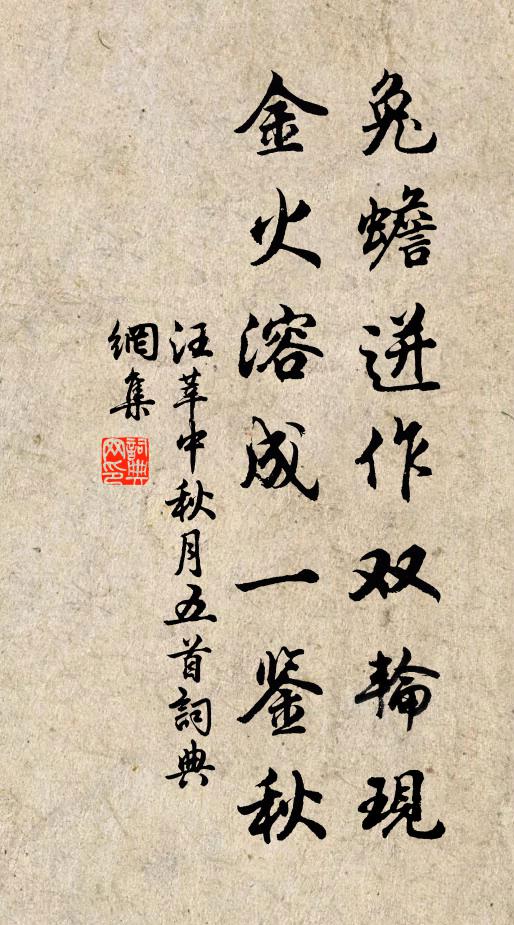 兔蟾迸作双輪現
金火溶成一鉴秋
汪莘中秋月五首詞典
網集
詞典
网印